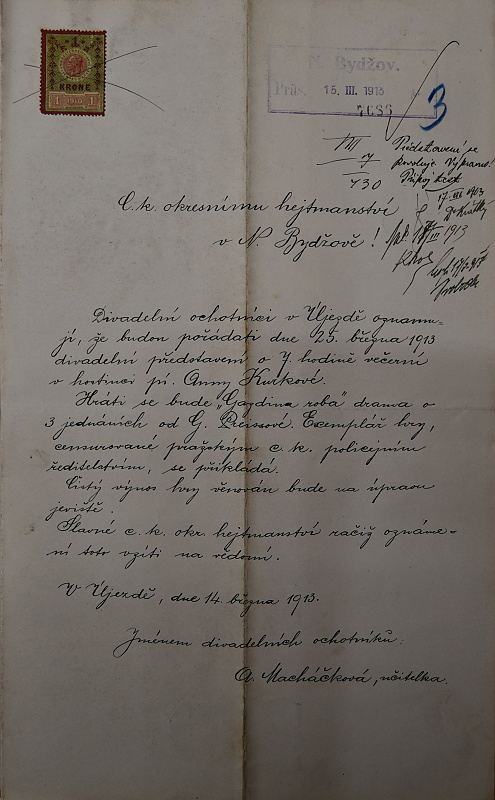 KRONE
1 1910 1
N. Bydžov.
Präs. 15. III. 1913
3
VIII
7
730
Představení se
povoluje.
17. III 1913
C. k. okresnímu hejtmanství
v N. Bydžově!
Divadelní ochotníci v Újezdě oznamu-
jí, že budou pořádati dne 25. března 1913
divadelní představení o 7. hodině večerní
v hostinci pí. Anny Kurkové.
Hráti se bude „Gazdina roba" drama o
3 jednáních od G. Preissové. Exemplář hry,
censurované pražským c. k. policejním
ředitelstvím, se přikládá.
Čistý výnos hry věnován bude na úpravu
jeviště.
Slavné c. k. okr. hejtmanství račiž oznáme-
ní toto vzíti na vědomí.
V Újezdě, dne 14. března 1913.
Jménem divadelních ochotníků:
A. Macháčková, učitelka.